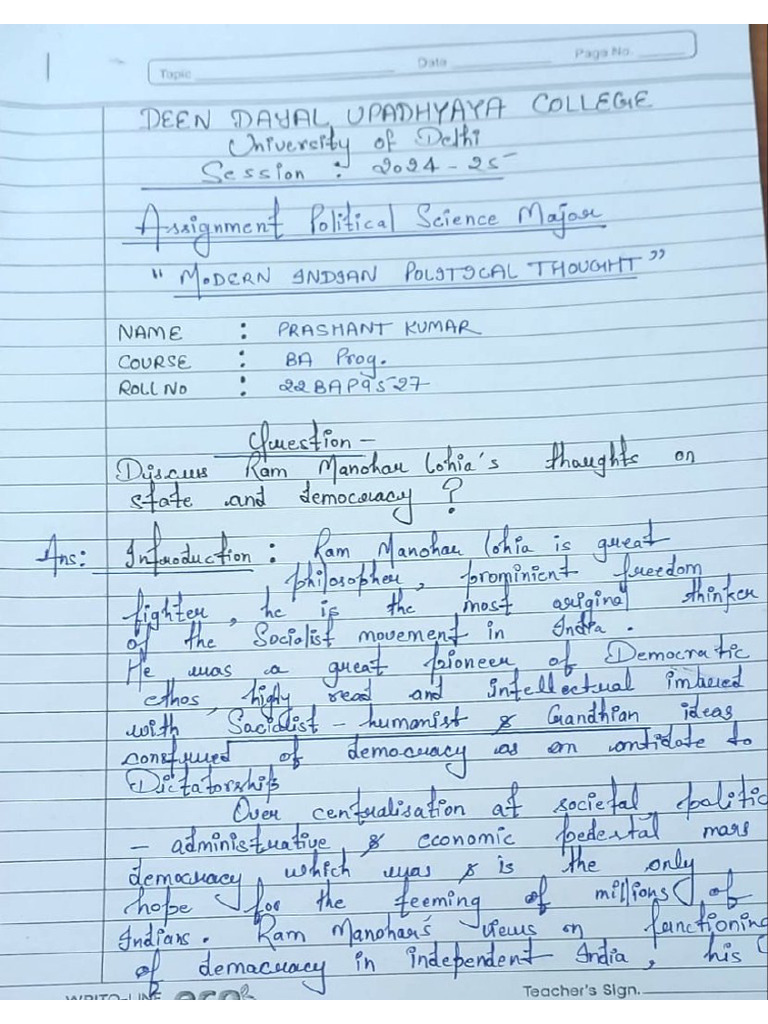 1
Topic Date Page No.
DEEN DAYAL UPADHYAYA COLLEGE
University of Delhi
Session : 2024-25
Assignment Political Science Major
"MODERN INDIAN POLITICAL THOUGHT"
NAME : PRASHANT KUMAR
COURSE : BA Prog.
ROLL NO : 22BAP9527
Question -
Discuss Ram Manohar lohia's thoughts on
state and democracy ?
Ans: Introduction : Ram Manohar lohia is great
philosopher, prominient freedom
fighter, he is the most original thinker
of the Socialist movement in India.
He was a great pioneer of Democratic
ethos, highy read and intellectual imbued
with Socialist - humanist & Gandhian ideas
construed of democracy as an antidate to
Dictatorship
Over centralisation of societal, politic
- administrative, & economic pedestal mars
democracy, which was & is the only
hope for the teeming of millions of
Indians. Ram Manohar's views on functioning
of democracy in independent India, his
Teacher's Sign.